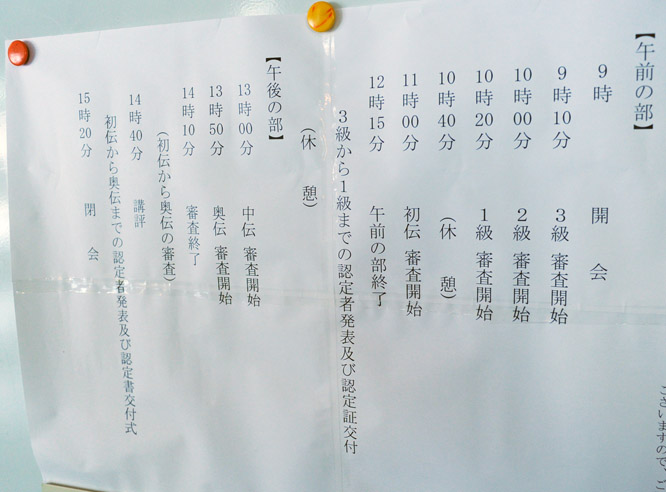 【午前の部】
9時 開会
9時10分 3級 審査開始
10時00分 2級 審査開始
10時20分 1級 審査開始
10時40分 (休憩)
11時00分 初伝 審査開始
12時15分 午前の部終了
3級から1級までの認定者発表及び認定証交付
(休憩)
【午後の部】
13時00分 中伝 審査開始
13時50分 奥伝 審査開始
14時10分 審査終了
(初伝から奥伝の審査)
14時40分 講評
初伝から奥伝までの認定者発表及び認定書交付式
15時20分 閉会
ございますので、ご